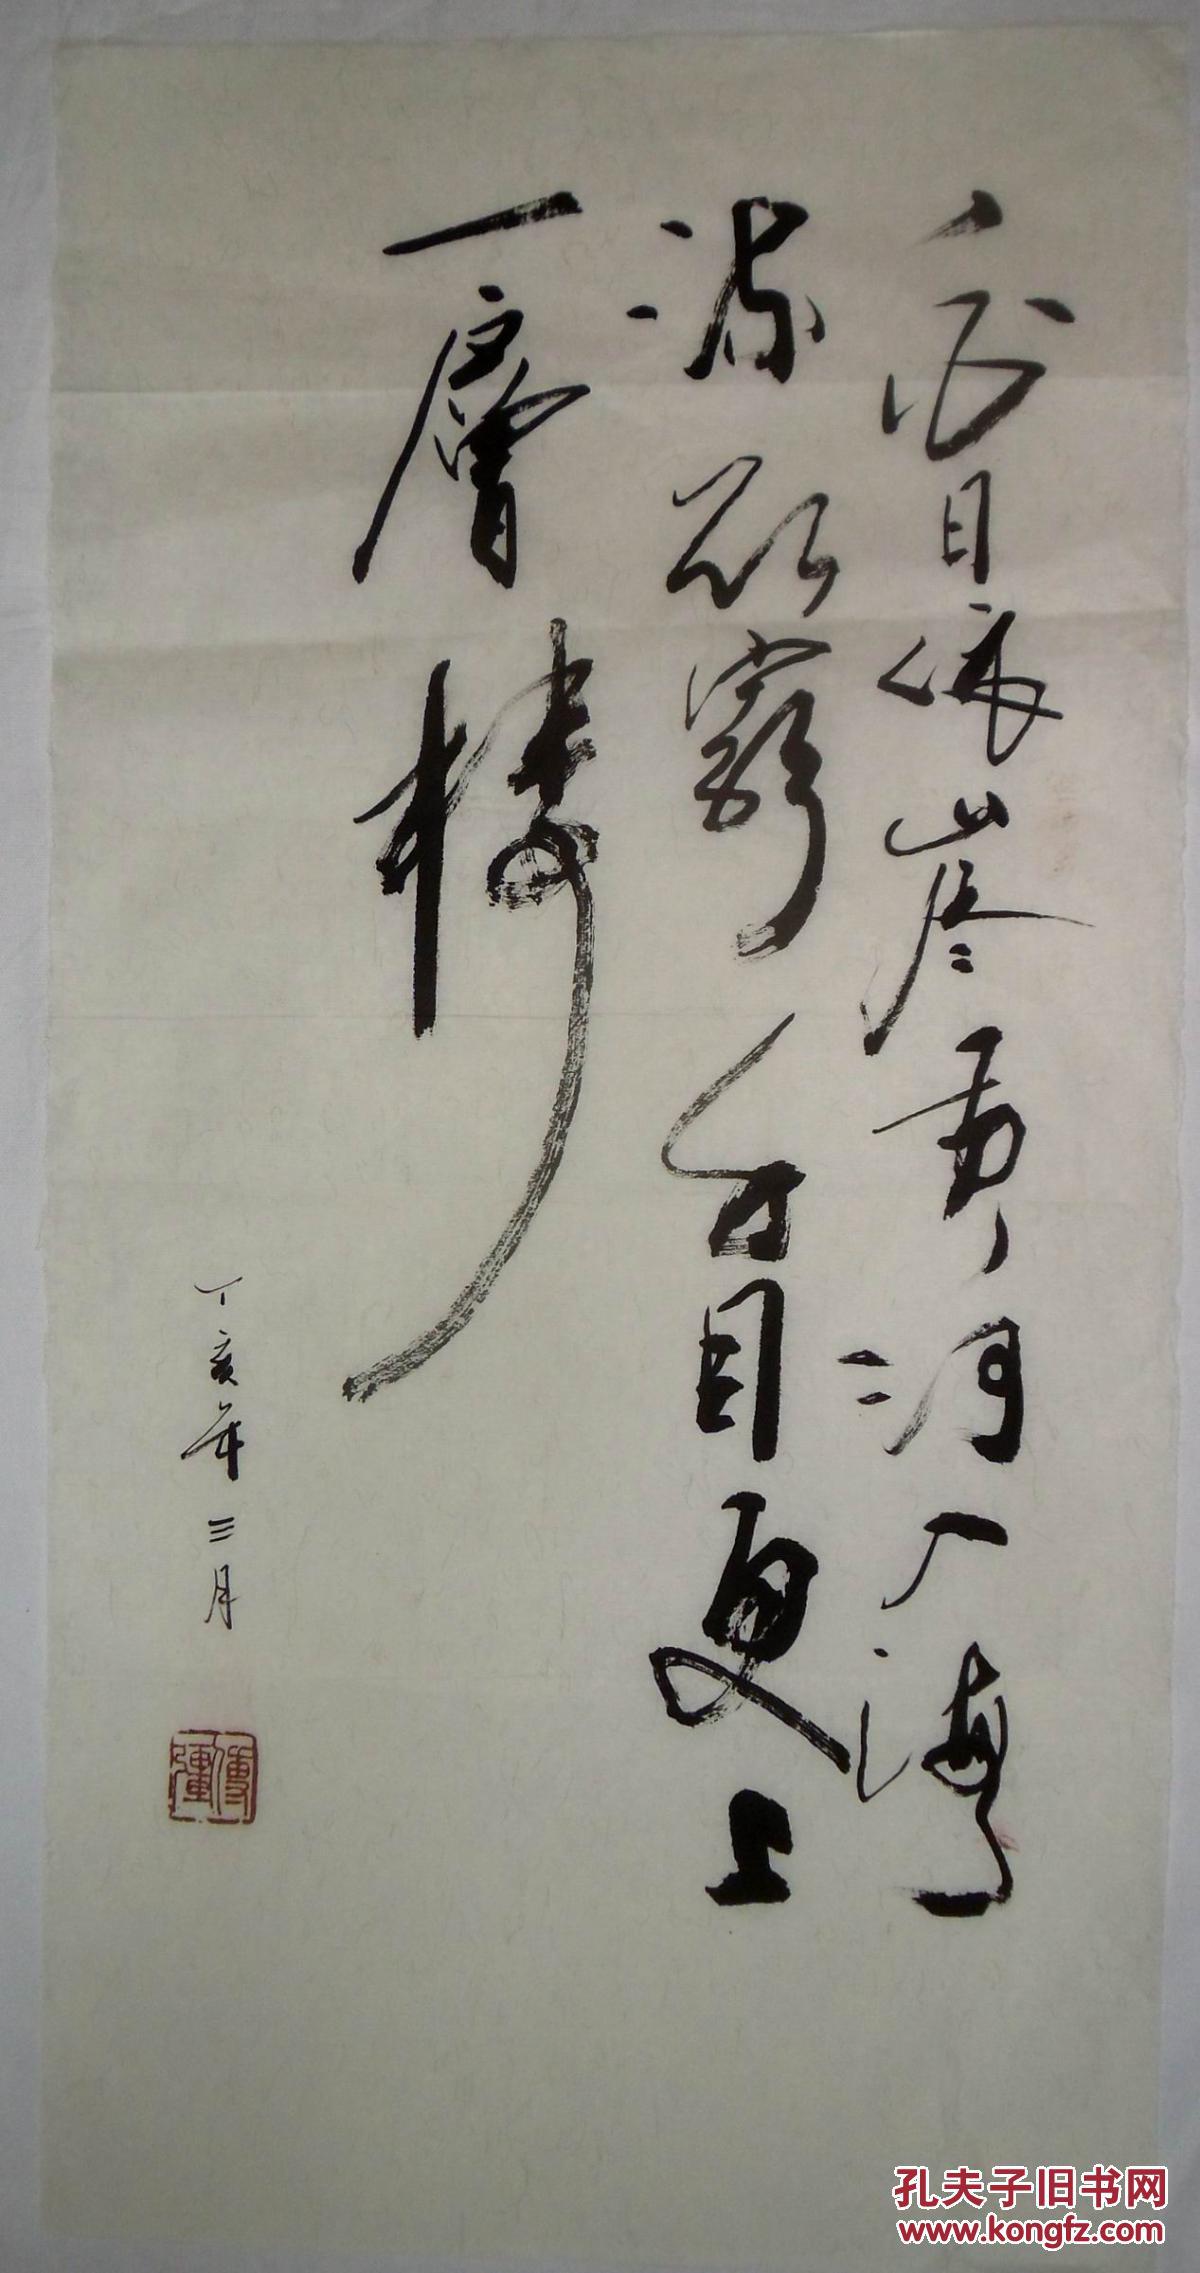 白日依山尽黄河入海
流欲窮千里目更上
一層樓
丁亥年三月
孔夫子旧书网
www.kongfz.com